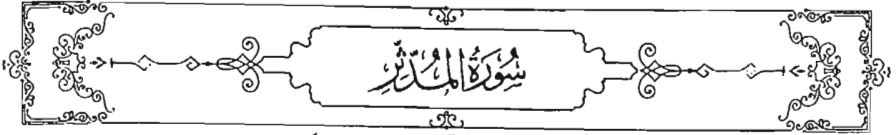 سُورَةُ الْمُدَّثِّرِ